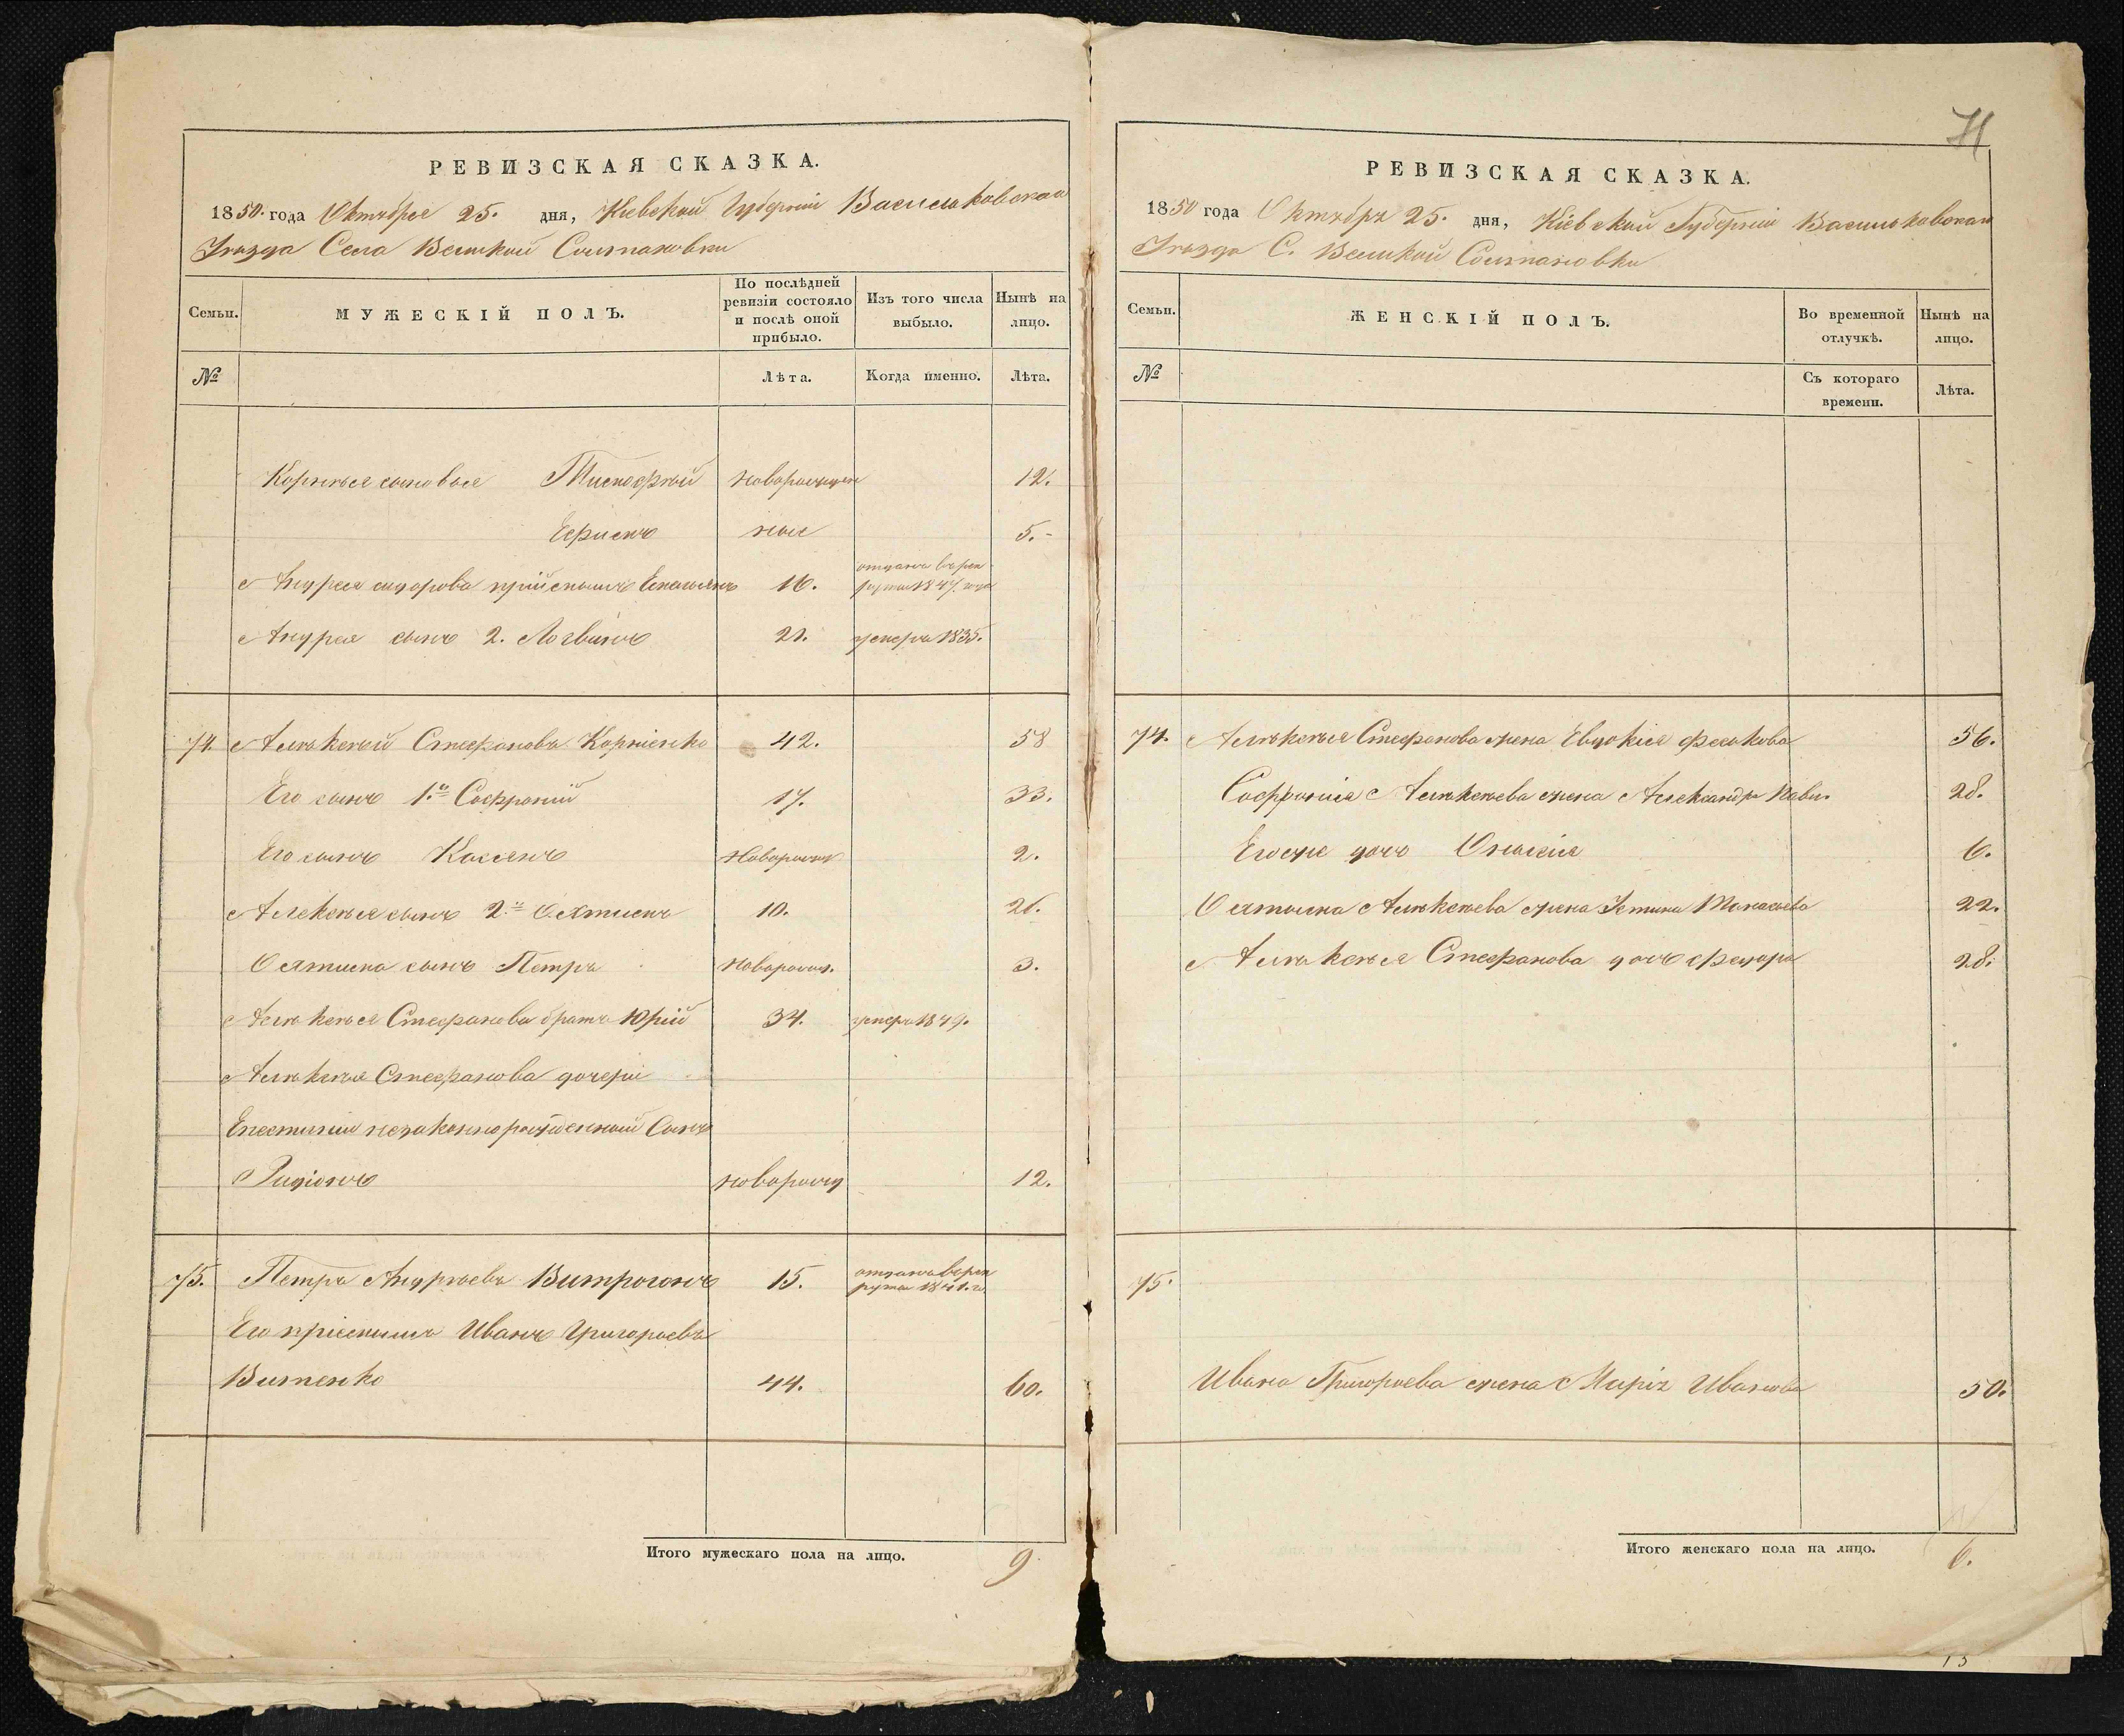 71
РЕВИЗСКАЯ СКАЗКА.
1850. года Октября 25. дня, Кіевской Губерніи Васильковскаго
Уѣзда Села Великой Солтановки
Семьи. МУЖЕСКІЙ ПОЛЪ. По послѣдней ревизіи состояло и послѣ оной прибыло. Изъ того числа выбыло. Нынѣ на лицо.
№ Лѣта. Когда именно. Лѣта.
Корнѣя сыновья Тимофѣй новорожден 12.
Ефимъ ныя 5.
Андрея сидорова пріймышъ Емельянъ 16. отданъ въ рек
руты 1847 года
Андрея сынъ 2. Логвинъ 21. умеръ 1835.
74. Алексѣй Стефановъ Корніенко 42. 58
Его сынъ 1.й Софроній 17. 33.
Его сынъ Касіянъ новорожд 2.
Алексѣя сынъ 2.й 10. 26.
сынъ Петръ новорожд. 3.
Алексѣя Стефанова братъ Юрій 34. умеръ 1849.
Алексѣя Стефанова дочери
незаконнорожденный Сынъ
Радіонъ новорожд 12.
75. Петръ Андрѣевъ Витрогонъ 15. отданъ въ рек
руты 1841. г.
Его пріемышъ Иванъ Григорьевъ
44. 60.
Итого мужескаго пола на лицо. 9
РЕВИЗСКАЯ СКАЗКА.
1850 года Октября 25. дня, Кіевской Губерніи Васильковскаго
Уѣзда С. Великой Солтановки
Семьи. ЖЕНСКІЙ ПОЛЪ. Во временной отлучкѣ. Нынѣ на лицо.
№ Съ котораго времени. Лѣта.
74. Алексѣя Стефанова жена Евдокія 56.
Софронія Алексѣева жена Александра Павл. 28.
Егоже дочь 6.
Алексѣева жена Устина 22.
Алексѣя Стефанова дочь Федора 28.
75.
Ивана Григорьева жена Марія Иванова 50.
Итого женскаго пола на лицо. 6.